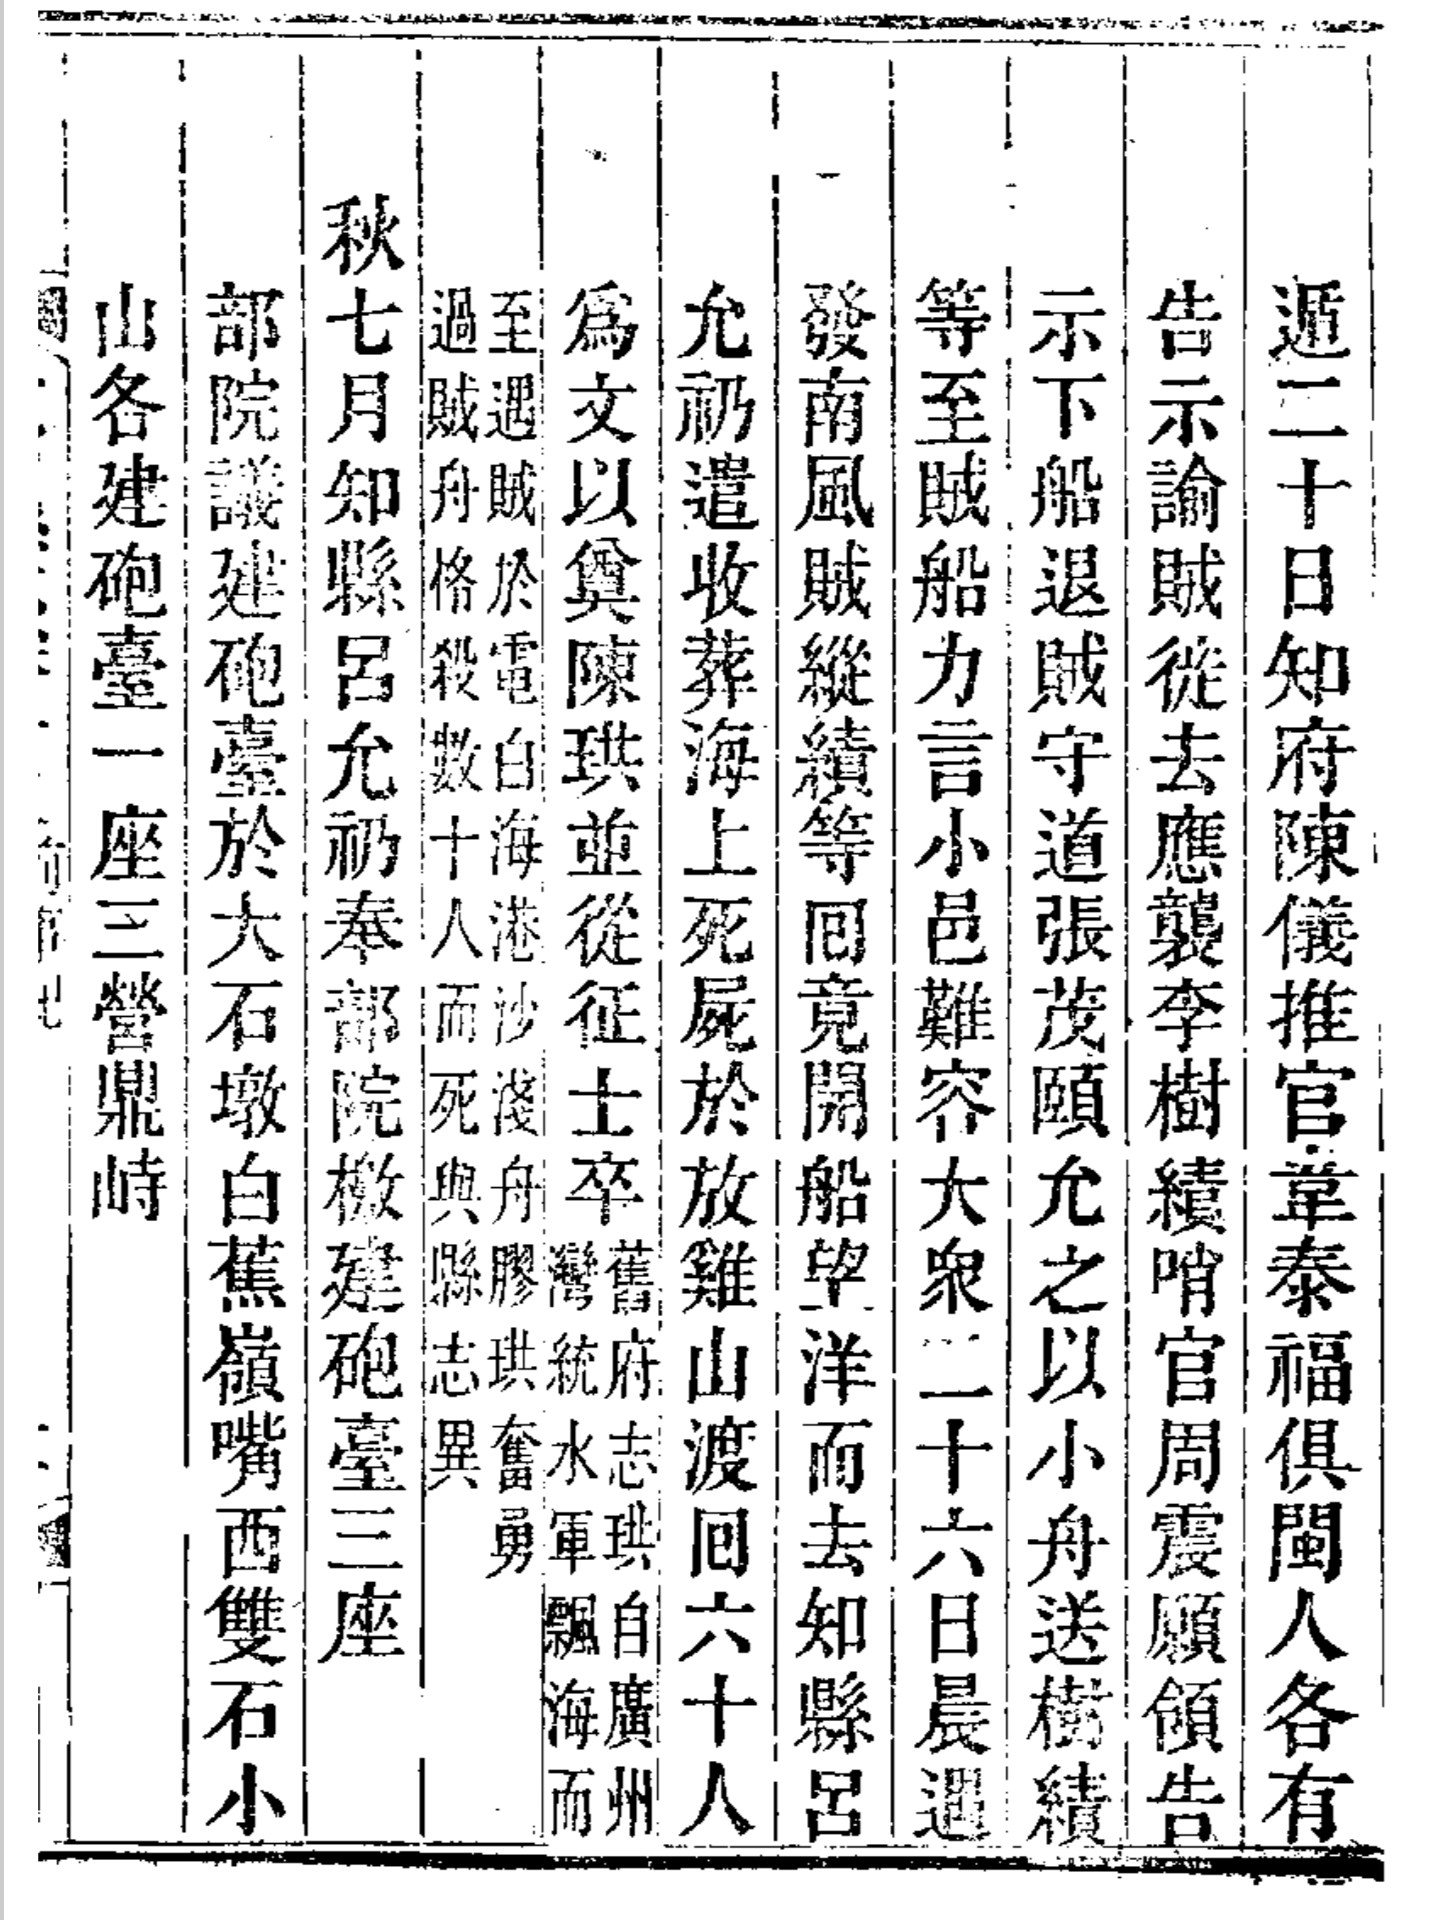 遁二十日知府陳儀推官韋泰福俱閩人各有
告示諭賊從去應襲李樹績哨官周震願領告
示下船退賊守道張茂頤允之以小舟送樹績
等至賊船力言小邑難容大衆二十六日晨遇
發南風賊縱績等囘竟開船望洋而去知縣呂
允礽遣收葬海上死屍於放雞山渡囘六十人
爲文以奠陳珙並從征士卒舊府志珙自廣州
灣統水軍飄海而
至遇賊於電白海港沙淺舟膠珙奮勇
過賊舟格殺數十人而死與縣志異
秋七月知縣呂允礽奉部院檄建砲臺三座
部院議建砲臺於大石墩白蕉嶺嘴西雙石小
山各建砲臺一座三營鼎峙